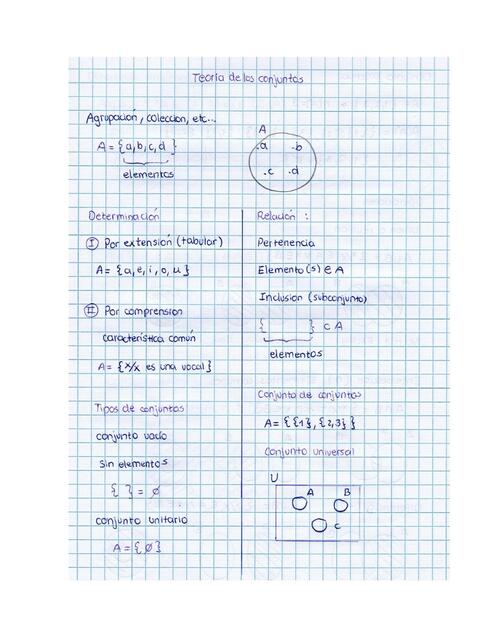 Teoría de los conjuntos
Agrupación, colección, etc...
A = {a, b, c, d}
elementos
A
.a
.b
.c
.d
Determinación
I Por extensión (tabular)
A = {a, e, i, o, u}
II Por comprension
característica común
A = {x/x es una vocal}
Tipos de conjuntos
conjunto vacío
Sin elementos
{ } = ∅
conjunto unitario
A = {∅}
Relación :
Pertenencia
Elemento(s) ∈ A
Inclusion (subconjunto)
{ } ⊂ A
elementos
Conjunto de conjuntos
A = {{1}, {2,3}}
Conjunto universal
U
A
B
C